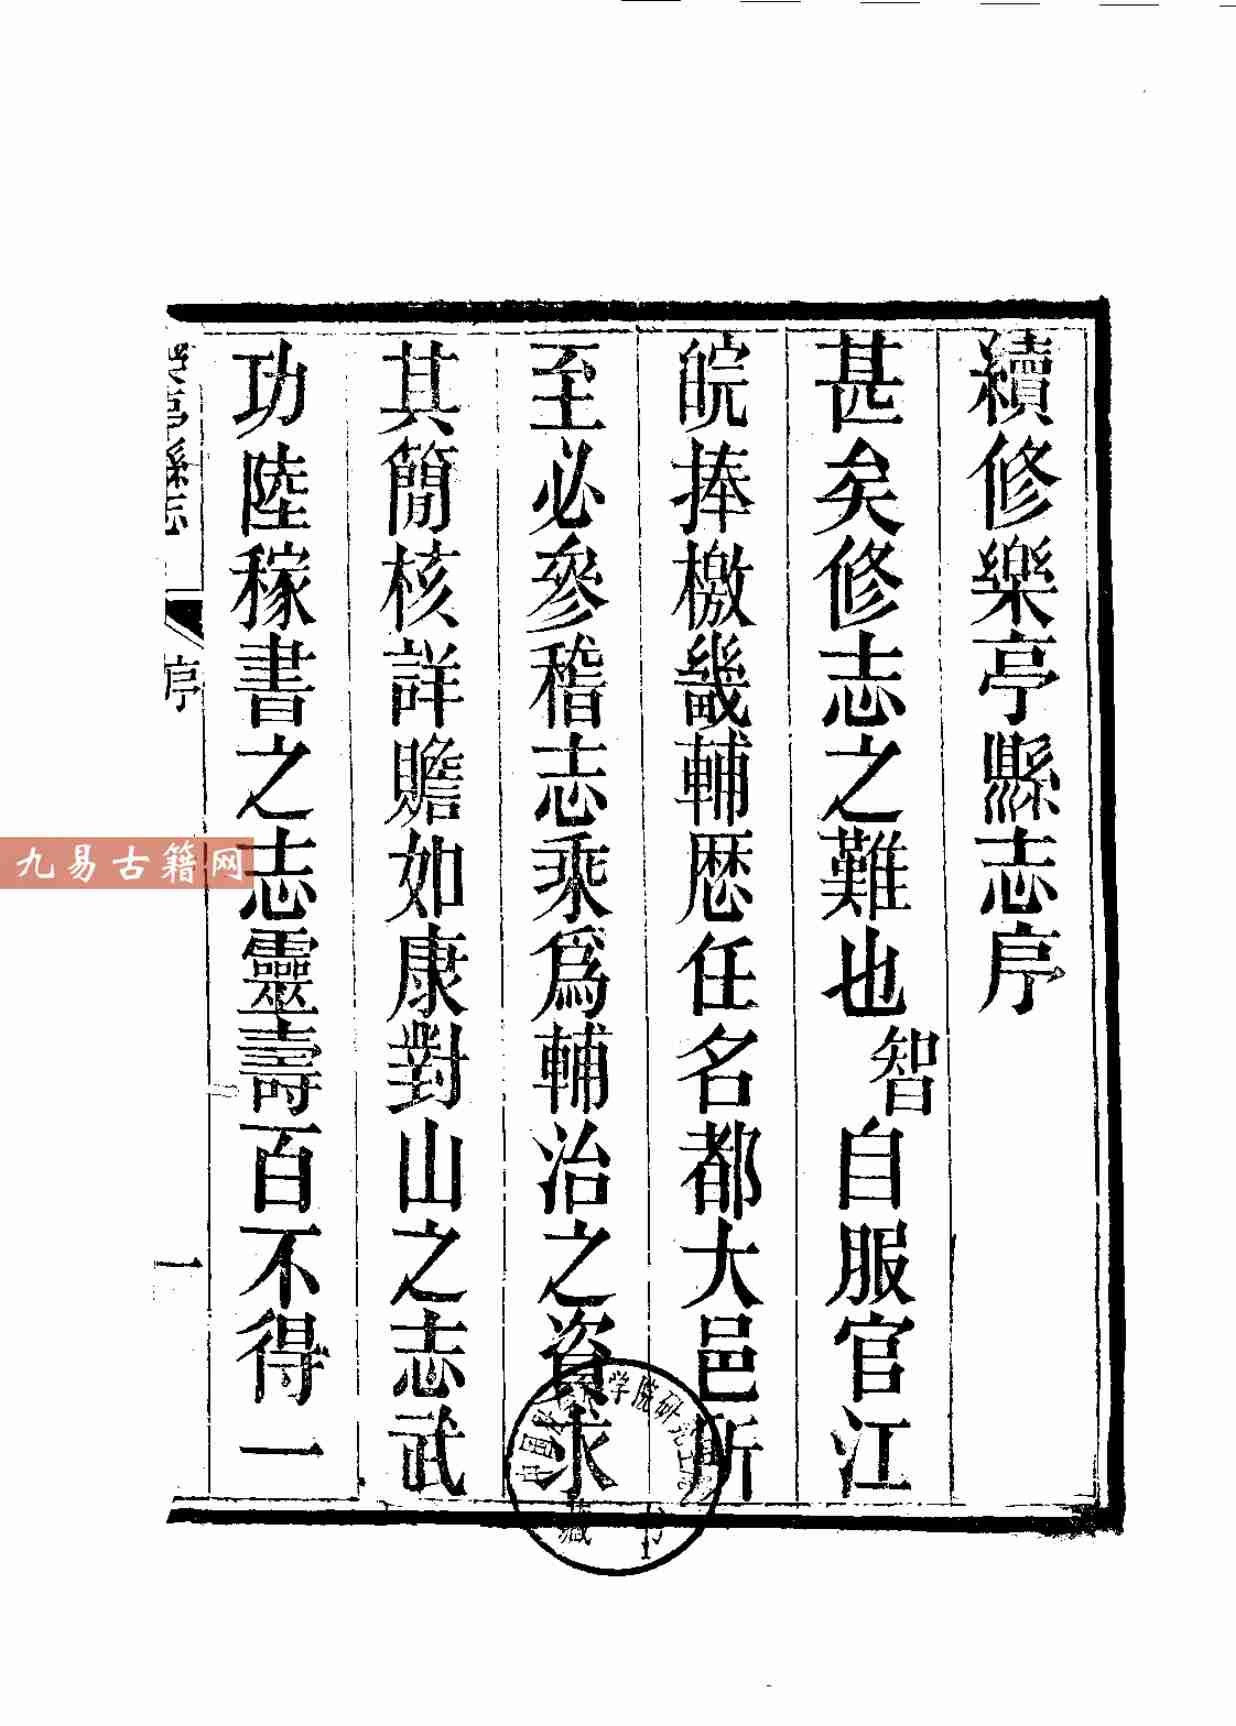 續修樂亭縣志序
甚矣修志之難也智自服官江
皖捧檄畿輔歷任名都大邑所
至必參稽志乘爲輔治之資求
其簡核詳贍如康對山之志武
功陸稼書之志靈壽百不得一
樂亭縣志
序
一
九易古籍网